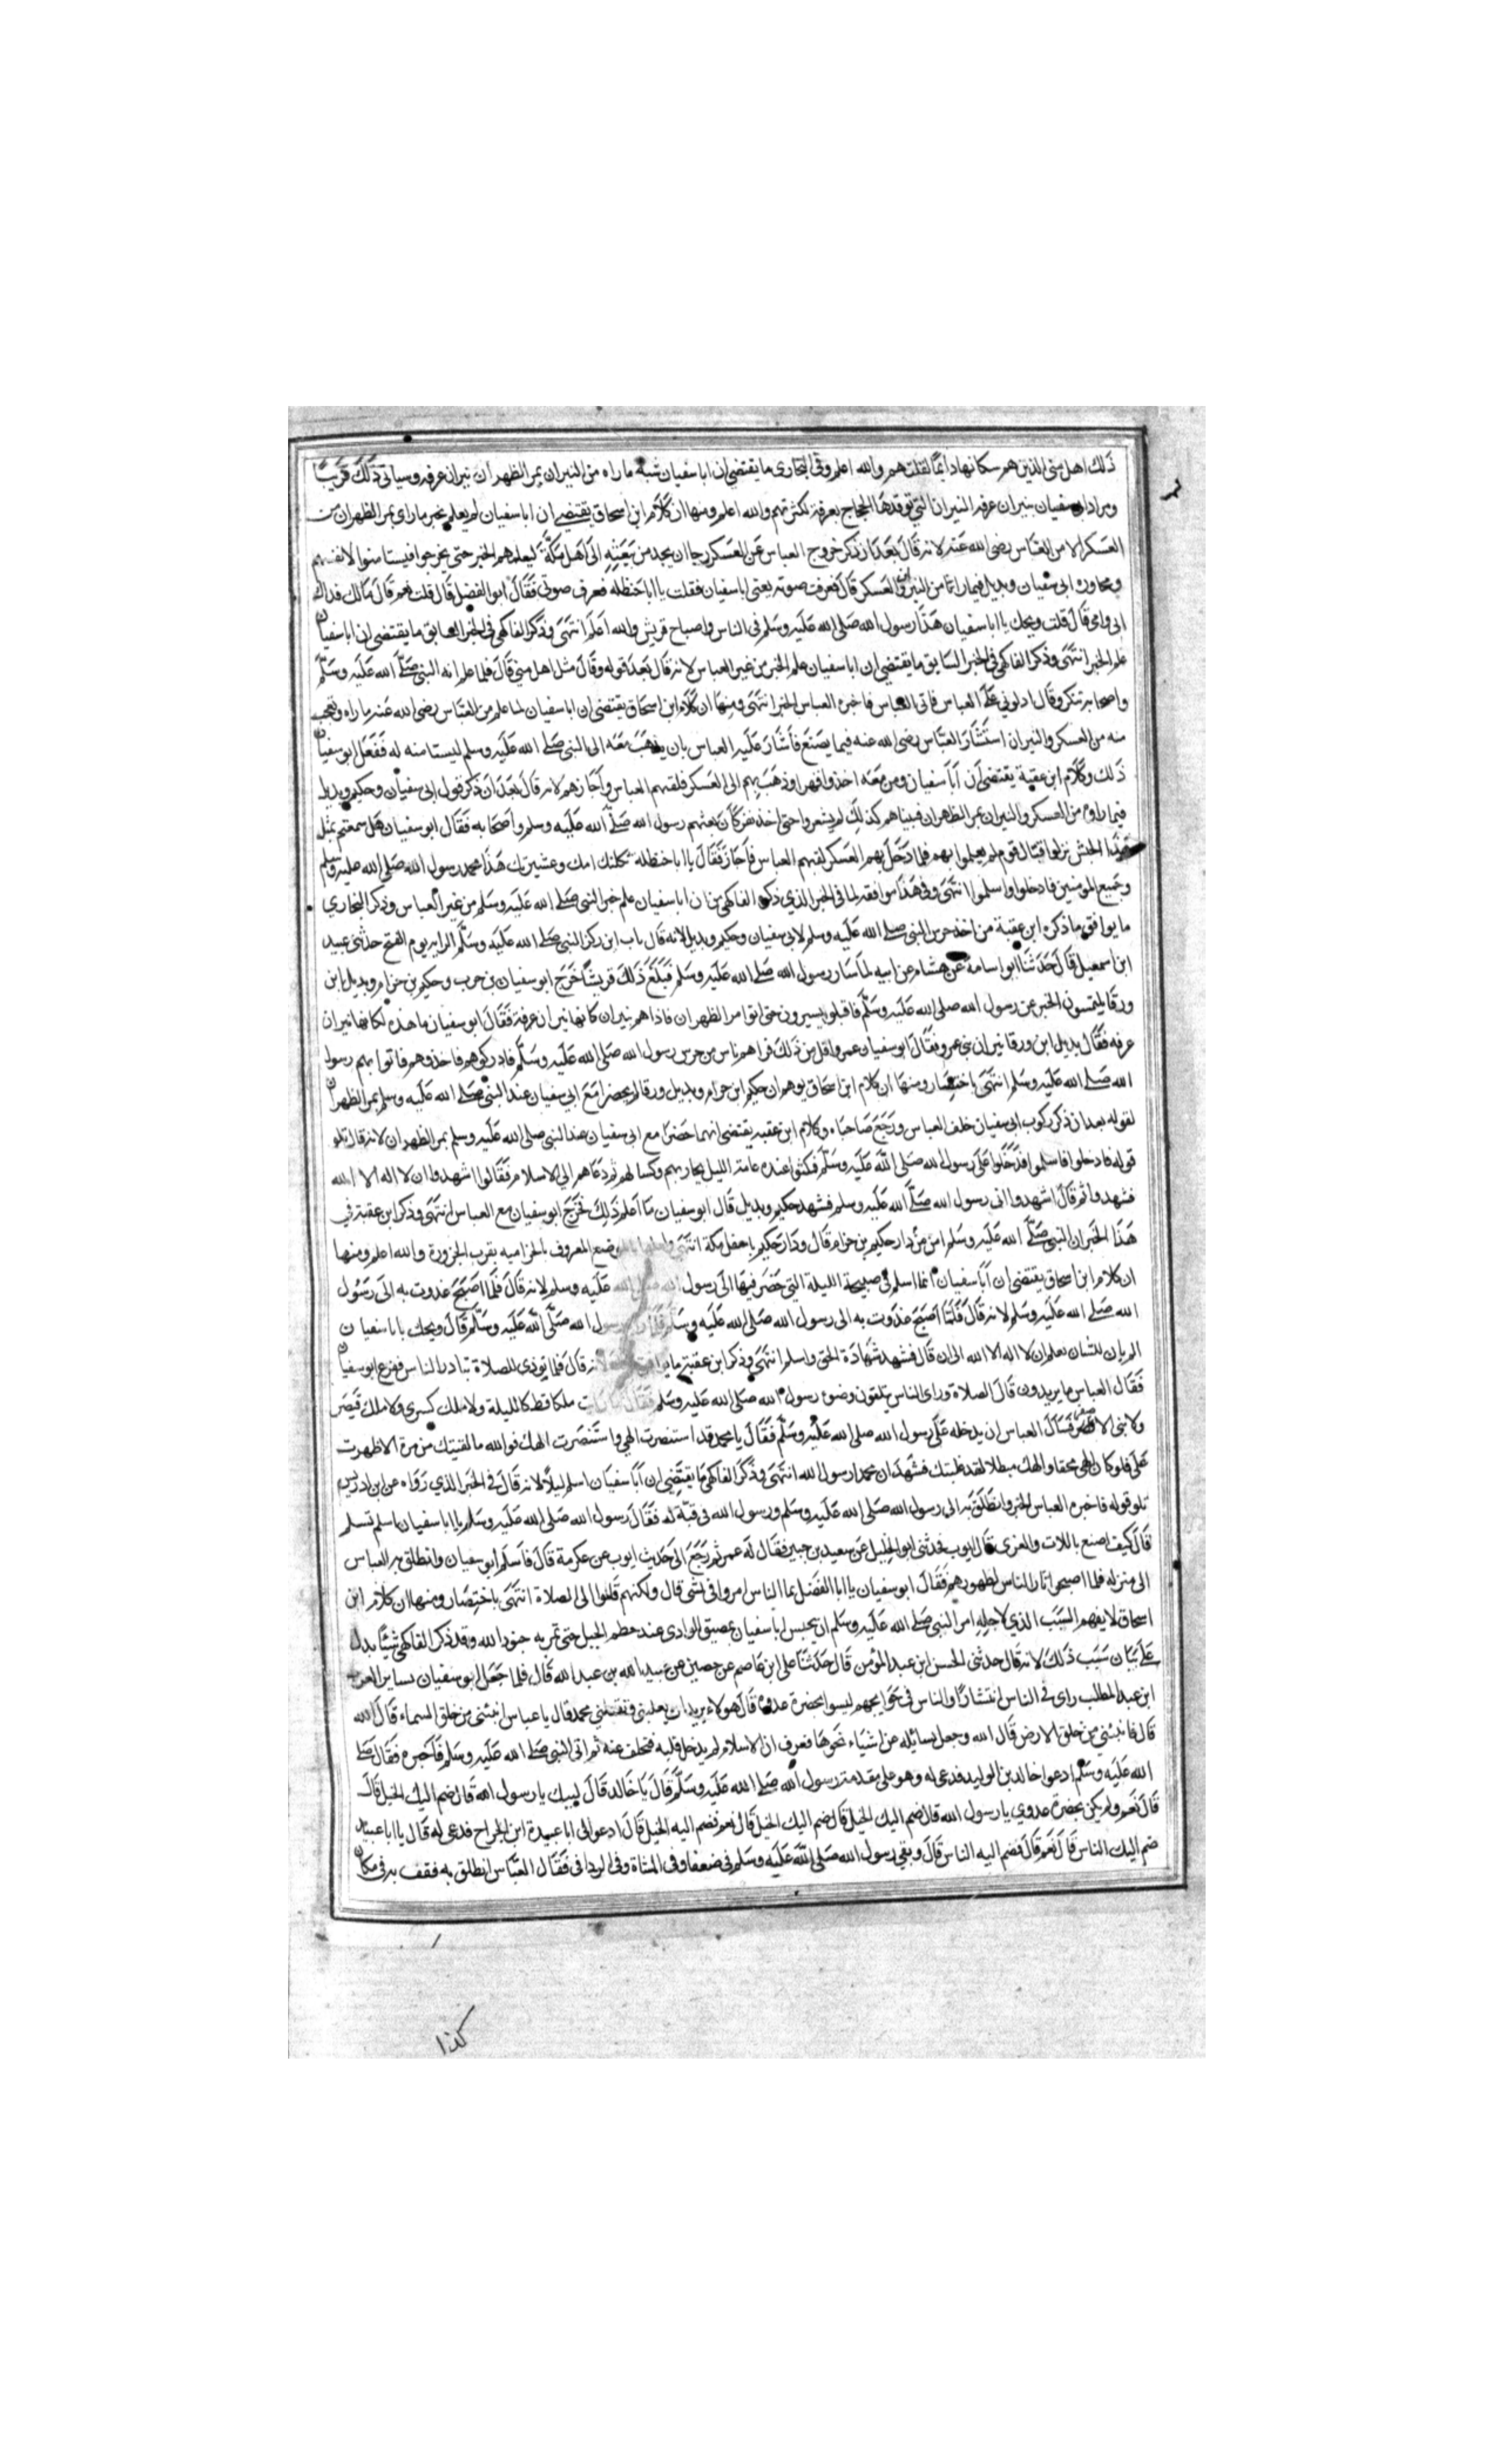 ذلك اهل منى الذين هم سكانها دايمًا لقلتهم والله اعلم وفي البخارى ما يقتضي ان ابا سفيان شبه ما راه من النيران بمر الظهران بنيران عرفه وسياتى ذلك قريبًا
ومراد ابى سفيان بنيران عرفه النيران التي توقدها الحجاج بعرفة لكثرتهم والله اعلم ومنها ان كلام ابن اسحاق يقتضي ان ابا سفيان لم يعلم بخبر ما راى بمر الظهران من
العسكر الا من العباس رضى الله عنه لانه قال بعد ان ذكر خروج العباس عن العسكر رجا ان يجد من يبعثه الى اهل مكة ليعلمهم الخبر حتى يخرجوا فيستامنوا لانفسهم
ومحاورة ابى سفيان وبديل فيما راتا من النيران والعسكر قال فعرفت صوته يعنى ابا سفيان فقلت يا ابا حنظله فعرف صوتى فقال ابو الفضل قال قلت نعم قال مالك فداك
ابى وامى قال قلت ويحك يا ابا سفيان هذا رسول الله صلى الله عليه وسلم في الناس واصباح قريش والله اعلم انتهى وذكر الفاكهى في الخبر السابق ما يقتضى ان ابا سفيان
علم الخبر انتهى وذكر الفاكهى في الخبر السابق ما يقتضي ان ابا سفيان علم الخبر من غير العباس لانه قال بعد قوله وقال مثل اهل منى قال فلما علم انه النبى صلى الله عليه وسلم
واصحابه تنكر وقال ادلوني على العباس فاتى العباس فاخبره العباس الخبر انتهى ومنها ان كلام ابن اسحاق يقتضى ان ابا سفيان لما علم من العباس رضى الله عنه ما راه وتعجب
منه من العسكر والنيران استشار العباس رضى الله عنه فيما يصنع فاشار عليه العباس بان يذهب معه الى النبى صلى الله عليه وسلم ليستامنه له ففعل ابو سفيان
ذلك وكلام ابن عقبة يقتضى ان ابا سفيان ومن معه اخذوا قهرا وذهب بهم الى العسكر فلقيهم العباس واجازهم لانه قال بعد ان ذكر قول ابى سفيان وحكيم وبديل
فيما راوه من العسكر والنيران بمر الظهران فبيناهم كذلك لم يشعروا حتى اخذ نفر كان بعثهم رسول الله صلى الله عليه وسلم واصحابه فقال ابو سفيان هل سمعتم بمثل
هذا الجش نزلوا قبال قوم لم يعلموا بهم فلما دخل بهم العسكر لقيهم العباس فاجاز فقال يا ابا حنظله ثكلتك امك وعشيرتك هذا محمد رسول الله صلى الله عليه وسلم
وجميع المومنين فادخلوا واسلموا انتهى وفي هذا موافقه لما في الخبر الذي ذكره الفاكهى من ان ابا سفيان علم خبر النبى صلى الله عليه وسلم من غير العباس وذكر البخاري
ما يوافق ما ذكره ابن عقبة من اخذ حرس النبى صلى الله عليه وسلم لابى سفيان وحكيم وبديل لانه قال باب اين ركز النبى صلى الله عليه وسلم الرايه يوم الفتح حدثنى عبيد
ابن اسمعيل قال حدثنا ابو اسامة عن هشام عن ابيه لما سار رسول الله صلى الله عليه وسلم فبلغ ذلك قريشًا خرج ابو سفيان بن حرب وحكيم بن حزام وبديل ابن
ورقا يلتمسون الخبر عن رسول الله صلى الله عليه وسلم فاقبلوا يسيرون حتى اتوا مر الظهران فاذا هم بنيران كانها نيران عرفة فقال ابو سفيان ما هذه لكانها نيران
عرفه فقال بديل ابن ورقا نيران بنى عمرو فقال ابو سفيان عمرو اقل من ذلك فراهم ناس من حرس رسول الله صلى الله عليه وسلم فادركوهم فاخذوهم فاتوا بهم رسول
الله صلى الله عليه وسلم انتهى باختصار ومنها ان كلام ابن اسحاق يوهم ان حكيم ابن حزام وبديل ورقا لم يحضرا مع ابي سفيان عند النبى صلى الله عليه وسلم بمر الظهران
لقوله بعد ان ذكر ركوب ابى سفيان خلف العباس ورجع صاحباه وكلام ابن عقبه يقتضى انهما حضرا مع ابى سفيان عند النبى صلى الله عليه وسلم بمر الظهران لانه قال تلو
قوله فادخلوا فاسلموا فدخلوا على رسول الله صلى الله عليه وسلم فمكثوا عنده عامة الليل يحاربهم وكسا لهم ثم دعاهم الى الاسلام فقالوا اشهدوا ان لا اله الا الله
فشهدوا ثم قال اشهدوا انى رسول الله صلى الله عليه وسلم فشهد حكيم وبديل قال ابو سفيان ما اعلم ذلك فخرج ابو سفيان مع العباس انتهى وذكر ابن عقبة في
هذا الخبر ان النبى صلى الله عليه وسلم امن من دار حكيم بن حزام قال ودار حكيم باسفل مكة انتهى الموضع المعروف بالحزاميه بقرب الحزورة والله اعلم ومنها
ان كلام ابن اسحاق يقتضى ان ابا سفيان انما اسلم في صبيحة الليلة التي حضر فيها الى رسول الله صلى الله عليه وسلم لانه قال فلما اصبح غدوت به الى رسول
الله صلى الله عليه وسلم لانه قال فلما اصبح غدوت به الى رسول الله صلى الله عليه وسلم رسول الله صلى الله عليه وسلم قال ويحك يابا سفيان
الم يان للشان تعلم ان لا اله الا الله الى ان قال فشهد شهادة الحق واسلم انتهى وذكر ابن عقبة ما لانه قال فلما نودى للصلاة تبادر الناس ففزع ابو سفيان
فقال العباس ما يريدون قال الصلاة وراى الناس يتلقون وضوء رسول الله صلى الله عليه وسلم فقال ما رايت ملكا قط كالليلة ولا ملك كسرى ولا ملك قيصر
ولا بنى الاصفر فسال العباس ان يدخله على رسول الله صلى الله عليه وسلم فقال يا محمد قد استنصرت الهي واستنصرت الهك فوالله ما لقيتك من مرة الا ظهرت
على فلو كان الهى محقا والهك مبطلا لقد غلبتك فشهد ان محمدا رسول الله انتهى وذكر الفاكهى ما يقتضى ان ابا سفيان اسلم ليلاً لانه قال في الخبر الذي رواه عن ابن ادريس
تلو قوله فاخبره العباس الخبر وانطلق به الى رسول الله صلى الله عليه وسلم ورسول الله في قبة له فقال رسول الله صلى الله عليه وسلم يا ابا سفيان اسلم تسلم
قال كيف اصنع باللات والعزى قال ايوب فحدثنى ابو الخليل عن سعيد بن جبير فقال له عمر ثم رجع الى حديث ايوب عن عكرمة قال فاسلم ابو سفيان وانطلق به العباس
الى منزله فلما اصبحوا ثار الناس لطهورهم فقال ابو سفيان يا ابا الفضل ما الناس امروا في بشى قال ولكنهم قاموا الى الصلاة انتهى باختصار ومنها ان كلام ابن
اسحاق لا يفهم السبب الذي لاجله امر النبى صلى الله عليه وسلم ان يحبس ابا سفيان بمضيق الوادى عند حطم الجبل حتى تمر به جنود الله وقد ذكر الفاكهى شيئًا يدل
على بيان سبب ذلك لانه قال حدثنى الحسن ابن عبد المؤمن قال حدثنا على ابن عاصم عن حصين عن عبيد الله بن عبد الله قال فلما جعل ابو سفيان يساير العباس
ابن عبد المطلب راى في الناس انتشارًا والناس في حوايجهم ليسوا بحضرة عدوه قال هولاء يريدان يغلبنى وتقتلني محمد قال يا عباس انبئنى من خلق السماء قال الله
قال فانبئني من خلق الارض قال الله وجعل يسائله عن اشياء نحوها فعرف ان الاسلام لم يدخل قلبه فتخلف عنه ثم اتى النبى صلى الله عليه وسلم فاخبره فقال صلى
الله عليه وسلم ادعوا خالد بن الوليد فدعى له وهو على مقدمة رسول الله صلى الله عليه وسلم قال يا خالد قال لبيك يا رسول الله قال ضم اليك الخيل قال
قال نعم ولم يكن بحضرة عدوي يا رسول الله قال ضم اليك الخيل قال ضم اليك الخيل قال نعم فضم اليه الخيل قال ادعوا لى ابا عبيدة ابن الجراح فدعى له قال يا ابا عبيده
ضم اليك الناس قال نعم قال فضم اليه الناس قال وبقي رسول الله صلى الله عليه وسلم في ضعفا وفى المشاة وفى الردافى فقال العباس انطلق به فقف به في مكان
كذا